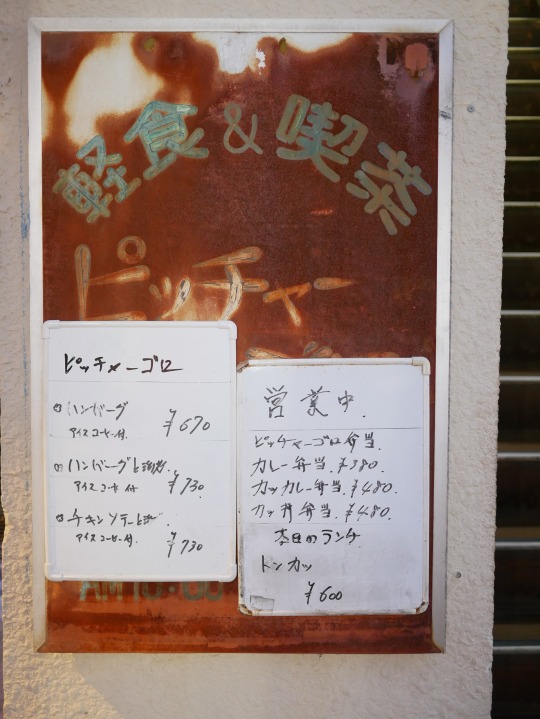 軽食&喫茶
ピッチャー
ピッチャーゴロ
ハンバーグ ¥670
アイスコーヒー付.
ハンバーグと ¥730
アイスコーヒー付
チキンソテーと
アイスコーヒー付. ¥730
AM10:00
営業中.
ピッチャーゴロ弁当
カレー弁当.¥380.
カツカレー弁当.¥480.
カツ丼弁当.¥480.
本日のランチ
トンカツ
¥600